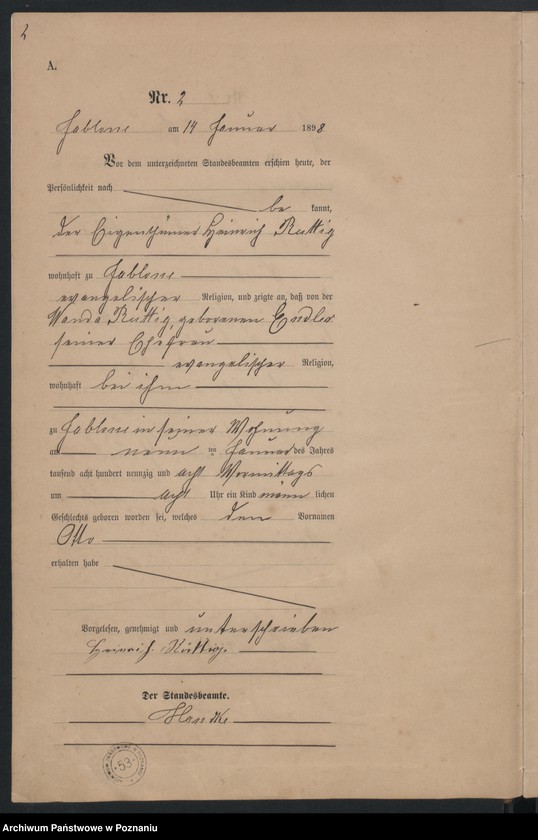 2
A.
Nr. 2
Jablone am 14 Januar 1898
Vor dem unterzeichneten Standesbeamten erschien heute, der
Persönlichkeit nach
be kannt,
der Eigenthümer Heinrich Ruttig
wohnhaft zu Jablone
evangelischer Religion, und zeigte an, daß von der
Wanda Ruttig, geborenen Endler
seiner Ehefrau
evangelischer Religion,
wohnhaft bei ihm
zu Jablone in seiner Wohnung
am neun ten Januar des Jahres
tausend acht hundert neunzig und acht Vormittags
um acht Uhr ein Kind männ lichen
Geschlechts geboren worden sei, welches den Vornamen
Otto
erhalten habe
Vorgelesen, genehmigt und unterschrieben
Heinrich Ruttig.
Der Standesbeamte.
53
Archiwum Państwowe w Poznaniu